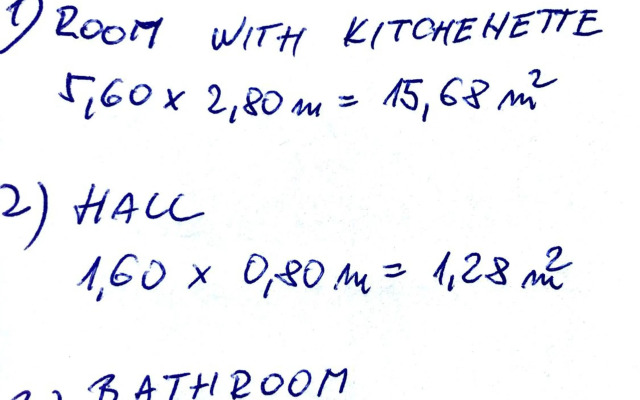 1) ROOM WITH KITCHENETTE
5,60 x 2,80 m = 15,68 m²
2) HALL
1,60 x 0,80 m = 1,28 m²
3) BATHROOM